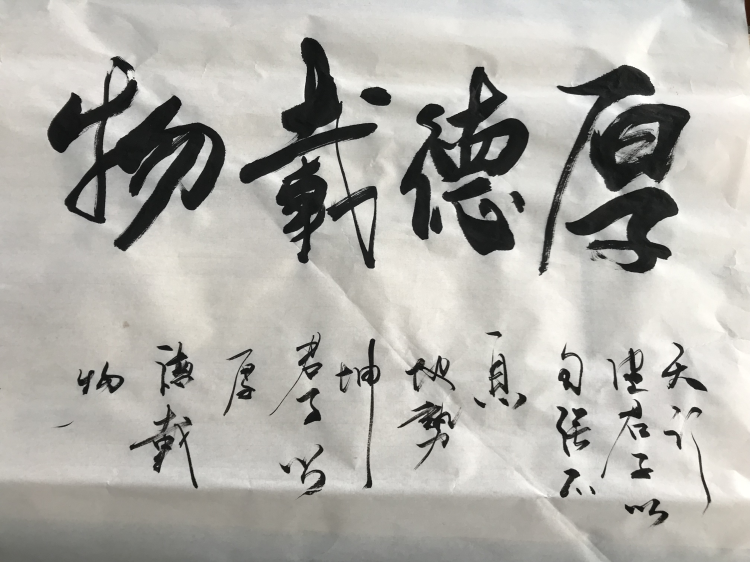 厚德载物
天行
健君子以
自强不
息
地势
坤
君子以
厚
德载
物